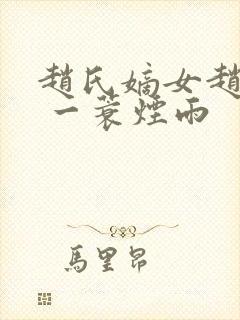 趙氏嫡女趙
一蓑煙雨
馬里昂